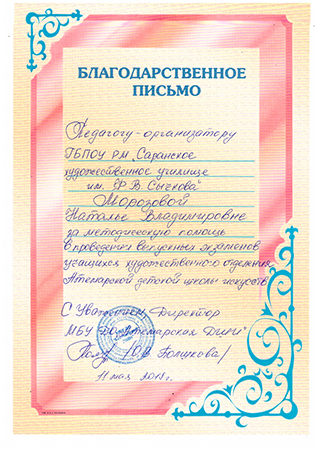 БЛАГОДАРСТВЕННОЕ
ПИСЬМО
Педагогу-организатору
ГБПОУ РМ "Саранское
художественное училище
им. Ф.В. Сычкова"
Морозовой
Наталье Владимировне
за методическую помощь
в проведении выпускных экзаменов
учащихся художественного отделения
Атемарской детской школы искусств
С Уважением, Директор
МБУ ДО "Атемарская ДШИ"
11 мая